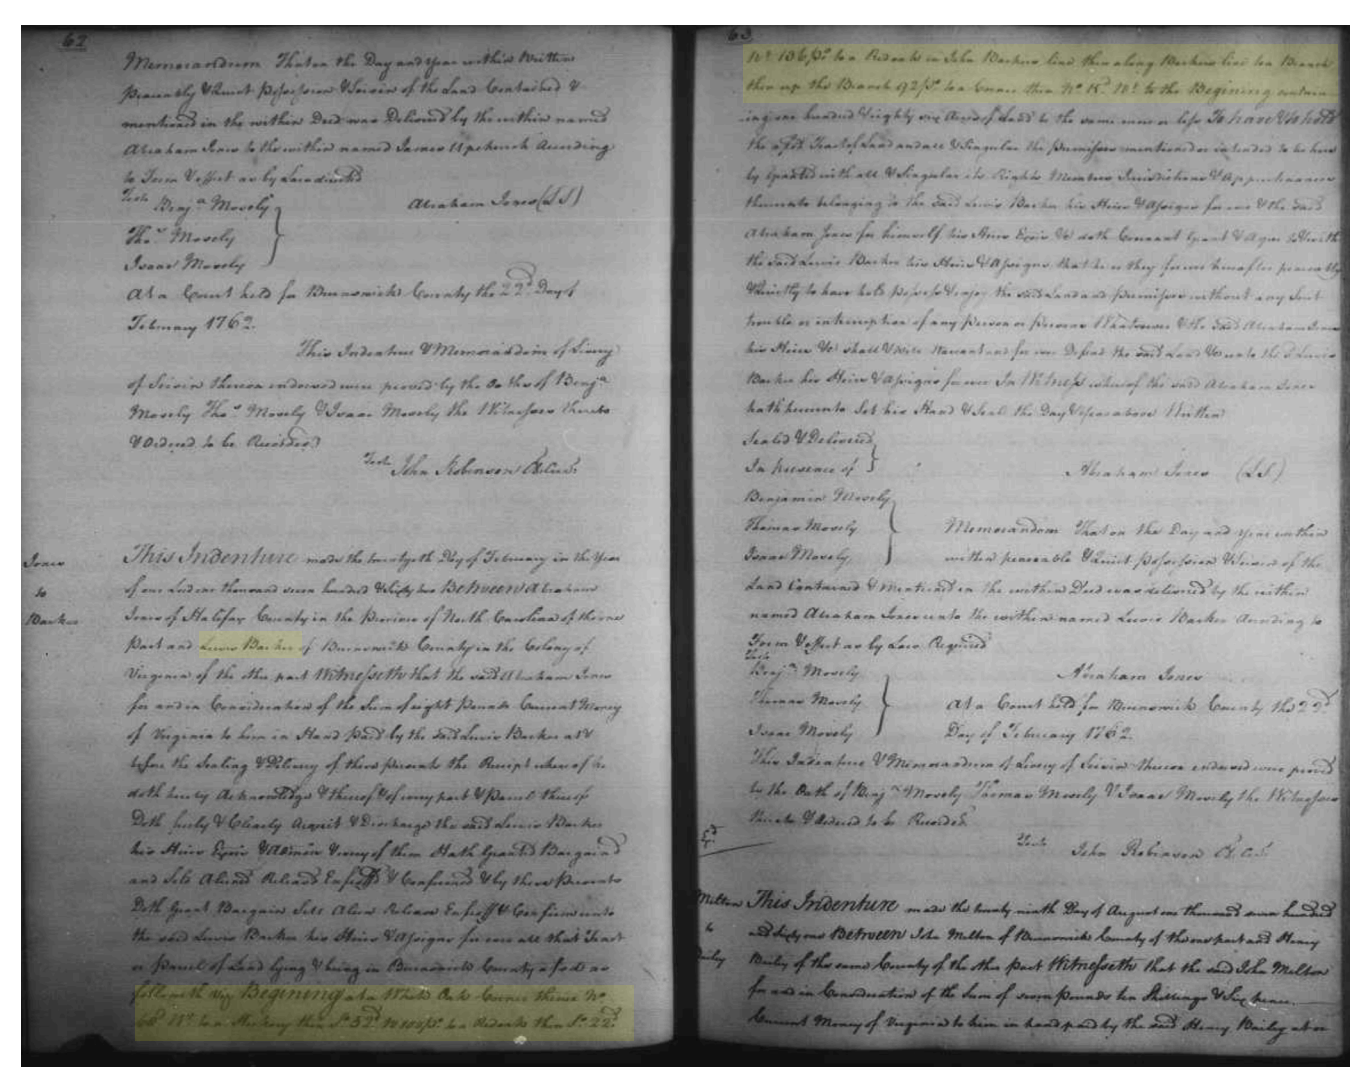 62
Memorandum That on the Day and year within Written
peaceably & Quiet possession & Seisin of the Land Contained &
mentioned in the within Deed was Delivered by the within named
Abraham Jones to the within named James Upchurch According
to Form & effect as by Law directed
Teste Benja. Mosely
Abraham Jones (LS)
Thos. Mosely
Isaac Mosely
At a Court held for Brunswick County the 22d. Day of
February 1762.
This Indenture & Memorandum of Livery
of Seisin thereon endorsed were proved by the Oaths of Benja.
Mosely Thos. Mosely & Isaac Mosely the Witnesses thereto
& Ordered to be Recorded
Teste John Robinson Cl. Cur.
Jones
to
Barker
This Indenture made the twentyeth Day of February in the Year
of our Lord one thousand seven hundred & Sixty two Between Abraham
Jones of Halifax County in the Province of North Carolina of the one
part and Lewis Barker of Brunswick County in the Colony of
Virginia of the other part Witnesseth that the said Abraham Jones
for and in Consideration of the Sum of eight Pounds Current Money
of Virginia to him in Hand paid by the said Lewis Barker at &
before the Sealing & Delivery of these presents the Receipt whereof he
doth hereby Acknowledge & thereof & of every part & Parcel thereof
Doth freely & Clearly Acquit & Discharge the said Lewis Barker
his Heirs Exrs. & Admin & every of them Hath Granted Bargain'd
and Sold Aliened Released Enfeoff'd & Confirmed & by these Presents
Doth Grant Bargain Sell Alien Release Enfeoff & Confirm unto
the said Lewis Barker his Heirs & Assigns for ever all that Tract
or Parcel of Land lying & being in Brunswick County afsd. as
followeth viz. Begining at a White Oak Corner thence No.
Wt. to a Hickory then So. 52d. Wt po. to a Redoak then So. 22d.
63
Wt. 136 po. to a Redoak in John Barkers line then along Barkers line to a Branch
then up the Branch 92 po. to a Corner then No. 15. Wt. to the Begining contain
ing one hundred & eighty six Acres of Land be the same more or less To have & to hold
the afsd. Tract of Land and all & Singular the Premisses mentioned or intended to be here
by Granted with all & Singular its Rights Members Jurisdictions & Appurtenances
thereunto belonging to the said Lewis Barker his Heirs & Assigns for ever & the said
Abraham Jones for himself his Heirs Exrs. &c doth Covenant Grant & Agree to & with
the said Lewis Barker his Heirs & Assigns that he or they forever hereafter peaceably
& Quietly to have hold possess & enjoy the said Land and Premisses without any Let
trouble or interruption of any Person or Persons Whatsoever & the said Abraham Jones
his Heirs &c shall & will Warrant and for ever Defend the said Land &c unto the sd. Lewis
Barker his Heirs & Assigns forever In Witness whereof the said Abraham Jones
hath hereunto Set his Hand & Seal the Day & year above Written
Sealed & Delivered
In presence of
Abraham Jones (LS)
Benjamin Mosely
Thomas Mosely
Isaac Mosely
Memorandum That on the Day and year within
written peaceable & Quiet Possession & Seisin of the
Land Contained & Mentioned in the within Deed was delivered by the within
named Abraham Jones unto the within named Lewis Barker According to
Form & effect as by Law Required
Teste
Benja. Mosely
Abraham Jones
Thomas Mosely
Isaac Mosely
At a Court held for Brunswick County the 22d.
Day of February 1762.
This Indenture & Memorandum of Livery of Seisin thereon endorsed were proved
by the Oath of Benja. Mosely Thomas Mosely & Isaac Mosely the Witnesses
thereto & Ordered to be Recorded
Teste
John Robinson Cl. Cur.
Milton
to
Bailey
This Indenture made the twenty ninth Day of August one thousand seven hundred
and Sixty one Between John Milton of Brunswick County of the one part and Henry
Bailey of the same County of the other part Witnesseth that the said John Milton
for and in Consideration of the Sum of seven pounds ten Shillings & Six pence
Current Money of Virginia to him in hand paid by the said Henry Bailey at or